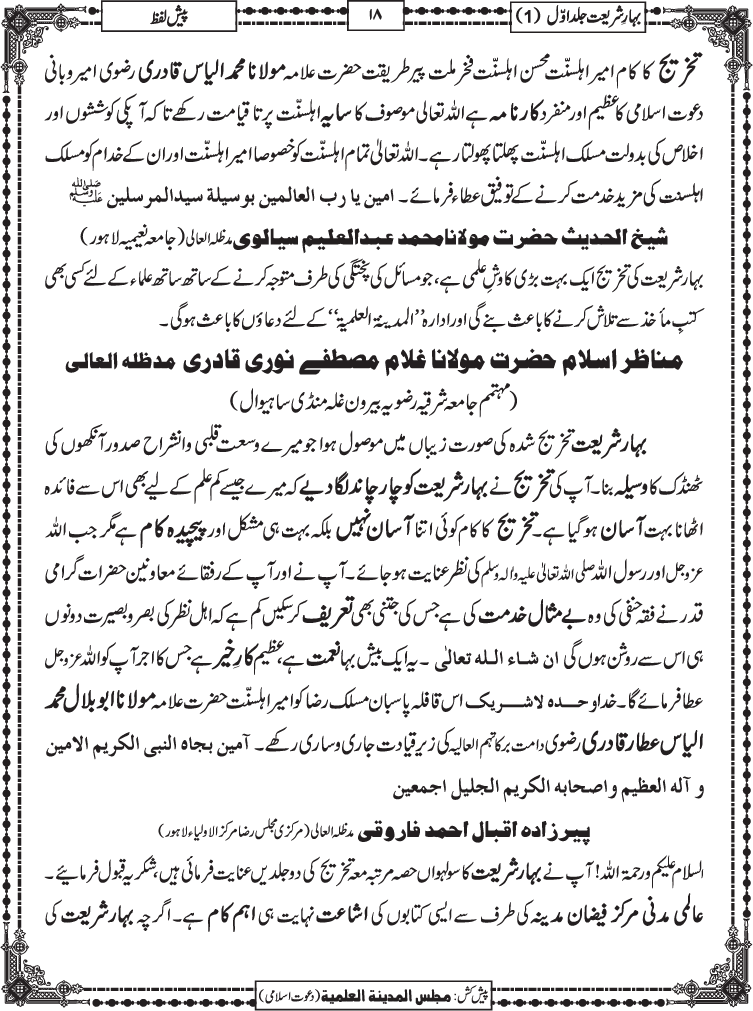 بہارِ شریعت جلد اوّل (1)
۱۸
پیش لفظ
تخریج کا کام امیر اہلسنّت محسن اہلسنّت فخر ملت پیر طریقت حضرت علامہ مولانا محمد الیاس قادری رضوی امیر و بانی
دعوت اسلامی کا عظیم اور منفرد کارنامہ ہے اللہ تعالی موصوف کا سایہ اہلسنّت پر تا قیامت رکھے تا کہ آپکی کوششوں اور
اخلاص کی بدولت مسلک اہلسنّت پھلتا پھولتا رہے۔ اللہ تعالیٰ تمام اہلسنّت کو خصوصا امیر اہلسنّت اور ان کے خدام کو مسلک
اہلسنت کی مزید خدمت کرنے کے توفیق عطاء فرمائے۔ امین یا رب العالمین بوسیلة سیدالمرسلین ﷺ
شیخ الحدیث حضرت مولانا محمد عبدالعلیم سیالوی مدظلہ العالی (جامعہ نعیمیہ لاہور)
بہارشریعت کی تخریج ایک بہت بڑی کاوشِ علمی ہے، جو مسائل کی پختگی کی طرف متوجہ کرنے کے ساتھ ساتھ علماء کے لئے کسی بھی
کتبِ مأخذ سے تلاش کرنے کا باعث بنے گی اور ادارہ ”المدینۃ العلمیۃ“ کے لئے دعاؤں کا باعث ہوگی۔
مناظر اسلام حضرت مولانا غلام مصطفے نوری قادری مدظلہ العالی
(مہتمم جامعہ شرقیہ رضویہ بیرون غلہ منڈی ساہیوال)
بہارشریعت تخریج شدہ کی صورت زیباں میں موصول ہوا جو میرے وسعت قلبی وانشراح صدور آنکھوں کی
ٹھنڈک کا وسیلہ بنا۔ آپ کی تخریج نے بہارشریعت کو چار چاند لگا دیے کہ میرے جیسے کم علم کے لیے بھی اس سے فائدہ
اٹھانا بہت آسان ہو گیا ہے۔ تخریج کا کام کوئی اتنا آسان نہیں بلکہ بہت ہی مشکل اور پیچیدہ کام ہے مگر جب اللہ
عزوجل اور رسول اللہ صلی اللہ تعالیٰ علیہ والہ وسلم کی نظر عنایت ہو جائے۔ آپ نے اور آپ کے رفقائے معاونین حضرات گرامی
قدر نے فقہ حنفی کی وہ بے مثال خدمت کی ہے جس کی جتنی بھی تعریف کرسکیں کم ہے کہ اہل نظر کی بصر و بصیرت دونوں
ہی اس سے روشن ہوں گی ان شاء اللہ تعالٰی ۔ یہ ایک بیش بہا نعمت ہے، عظیم کارِ خیر ہے جس کا اجر آپ کو اللہ عزوجل
عطا فرمائے گا۔ خدا وحدہ لاشریک اس قافلہ پاسبان مسلک رضا کو امیر اہلسنّت حضرت علامہ مولانا ابو بلال محمد
الیاس عطار قادری رضوی دامت برکاتہم العالیہ کی زیرِ قیادت جاری وساری رکھے۔ آمین بجاہ النبی الکریم الامین
و آلہ العظیم و اصحابہ الکریم الجلیل اجمعین
پیرزادہ اقبال احمد فاروقی مدظلہ العالی (مرکزی مجلس رضا مرکز الاولیاء لاہور)
السلام علیکم ورحمۃ اللہ! آپ نے بہارشریعت کا سولہواں حصہ مرتبہ معہ تخریج کی دو جلدیں عنایت فرمائی ہیں، شکریہ قبول فرمائیے۔
عالمی مدنی مرکز فیضان مدینہ کی طرف سے ایسی کتابوں کی اشاعت نہایت ہی اہم کام ہے۔ اگرچہ بہارشریعت کی
پیش کش: مجلس المدینۃ العلمیۃ (دعوت اسلامی)